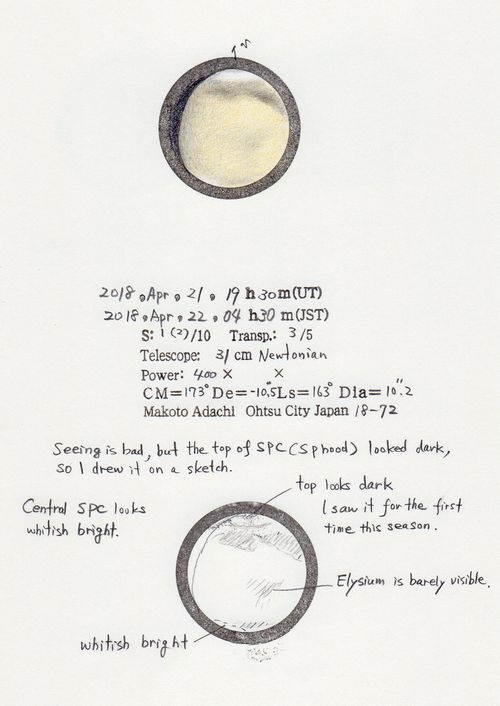 2018, Apr, 21, 19 h 30 m (UT)
2018, Apr, 22, 04 h 30 m (JST)
S: 1 (2)/10 Transp.: 3/5
Telescope: 31 cm Newtonian
Power: 400 × ×
CM=173° De=-10.5 Ls=163° Dia=10".2
Makoto Adachi Ohtsu City Japan 18-72
Seeing is bad, but the top of SPC (S p hood) looked dark,
so I drew it on a sketch.
top looks dark
Central SPC looks
whitish bright.
I saw it for the first
time this season.
Elysium is barely visible.
whitish bright